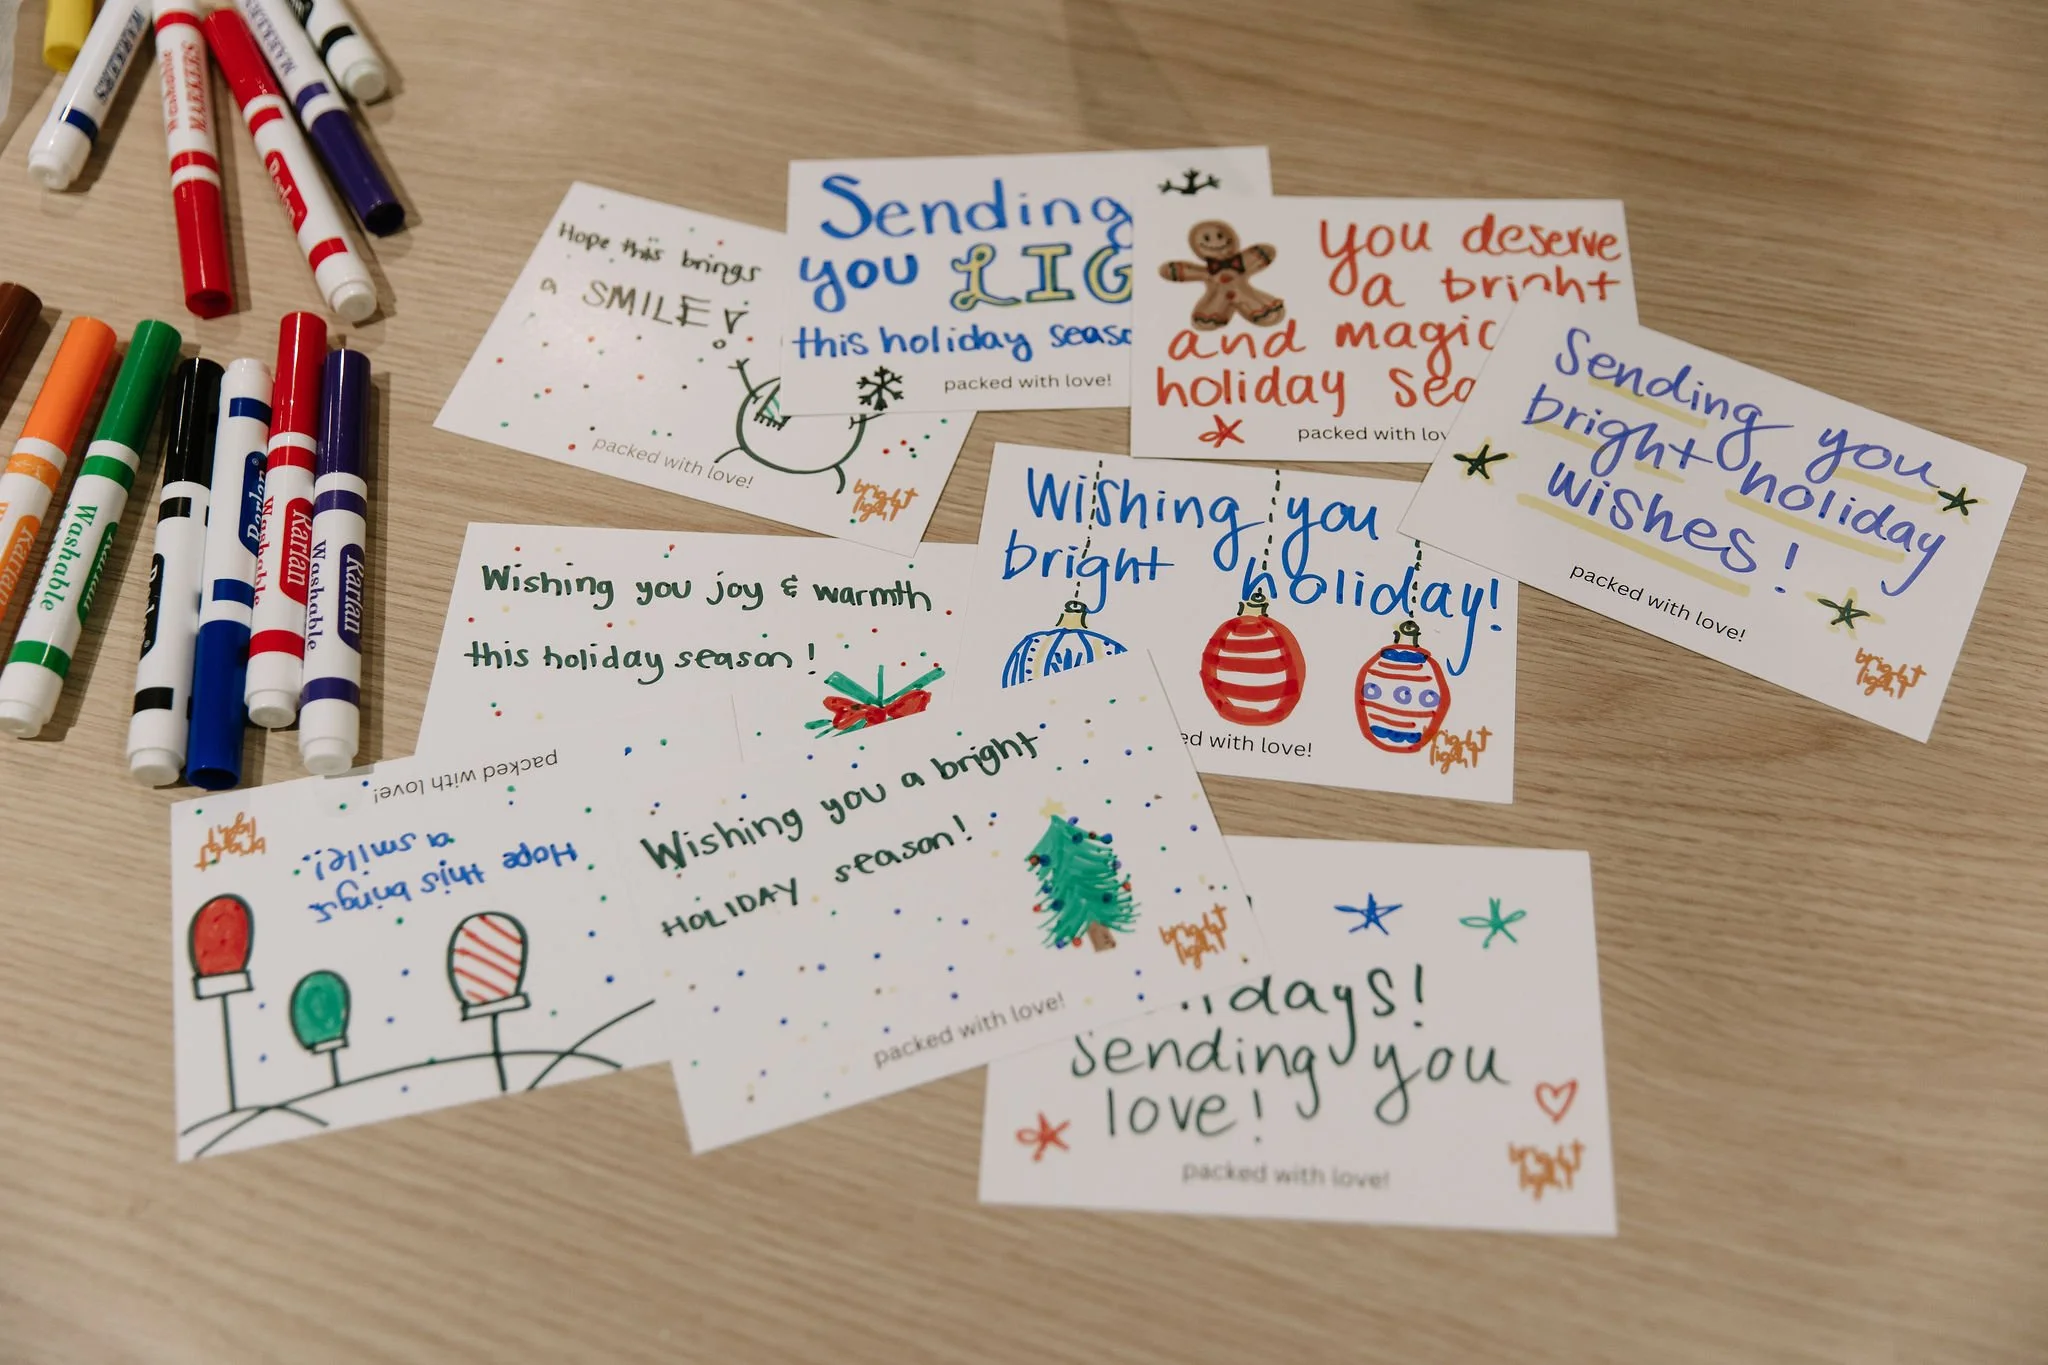 Hope this brings
a SMILE!
packed with love!
bright
light
Sending
you LIG
this holiday seaso
packed with love!
You deserve
a bright
and magic
holiday sea
packed with lov
Sending you
bright holiday
wishes!
packed with love!
bright
light
Wishing you joy & warmth
this holiday season!
Wishing you
bright holiday!
ed with love!
bright
light
packed with love!
Hope this brings
a smile!
bright
light
Wishing you a bright
HOLIDAY season!
packed with love!
bright
light
idays!
Sending you
love!
packed with love!
bright
light
MARKERS
Washable
Washable
Karlan
Washable
Karlan